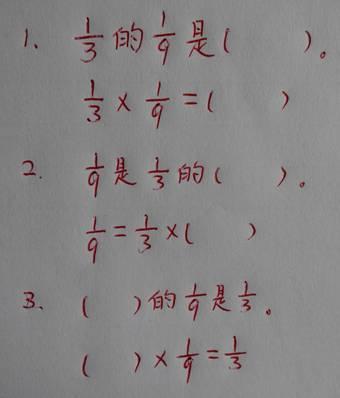 1. 1/3 的 1/9 是( )。
1/3 × 1/9 = ( )
2. 1/9 是 1/3 的( )。
1/9 = 1/3 × ( )
3. ( )的 1/9 是 1/3。
( ) × 1/9 = 1/3